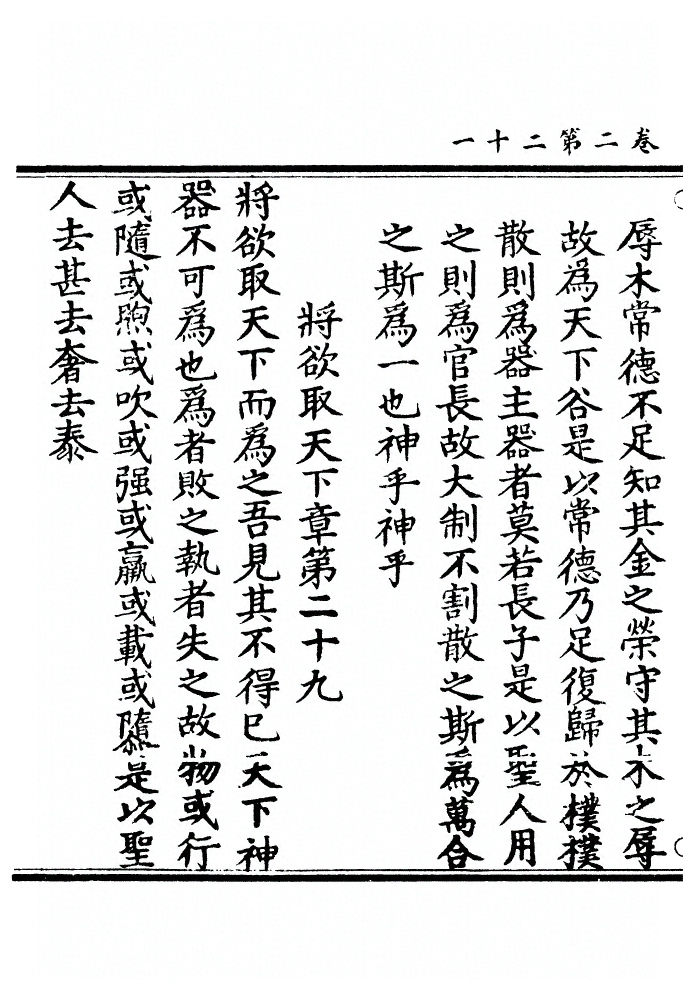 卷二第二十一
辱木常德不足知其金之榮守其木之辱
故為天下谷是以常德乃足復歸於樸樸
散則為器主器者莫若長子是以聖人用
之則為官長故大制不割散之斯為萬合
之斯為一也神乎神乎
將欲取天下章第二十九
將欲取天下而為之吾見其不得已天下神
器不可為也為者敗之執者失之故物或行
或隨或煦或吹或强或羸或載或隳是以聖
人去甚去奢去泰